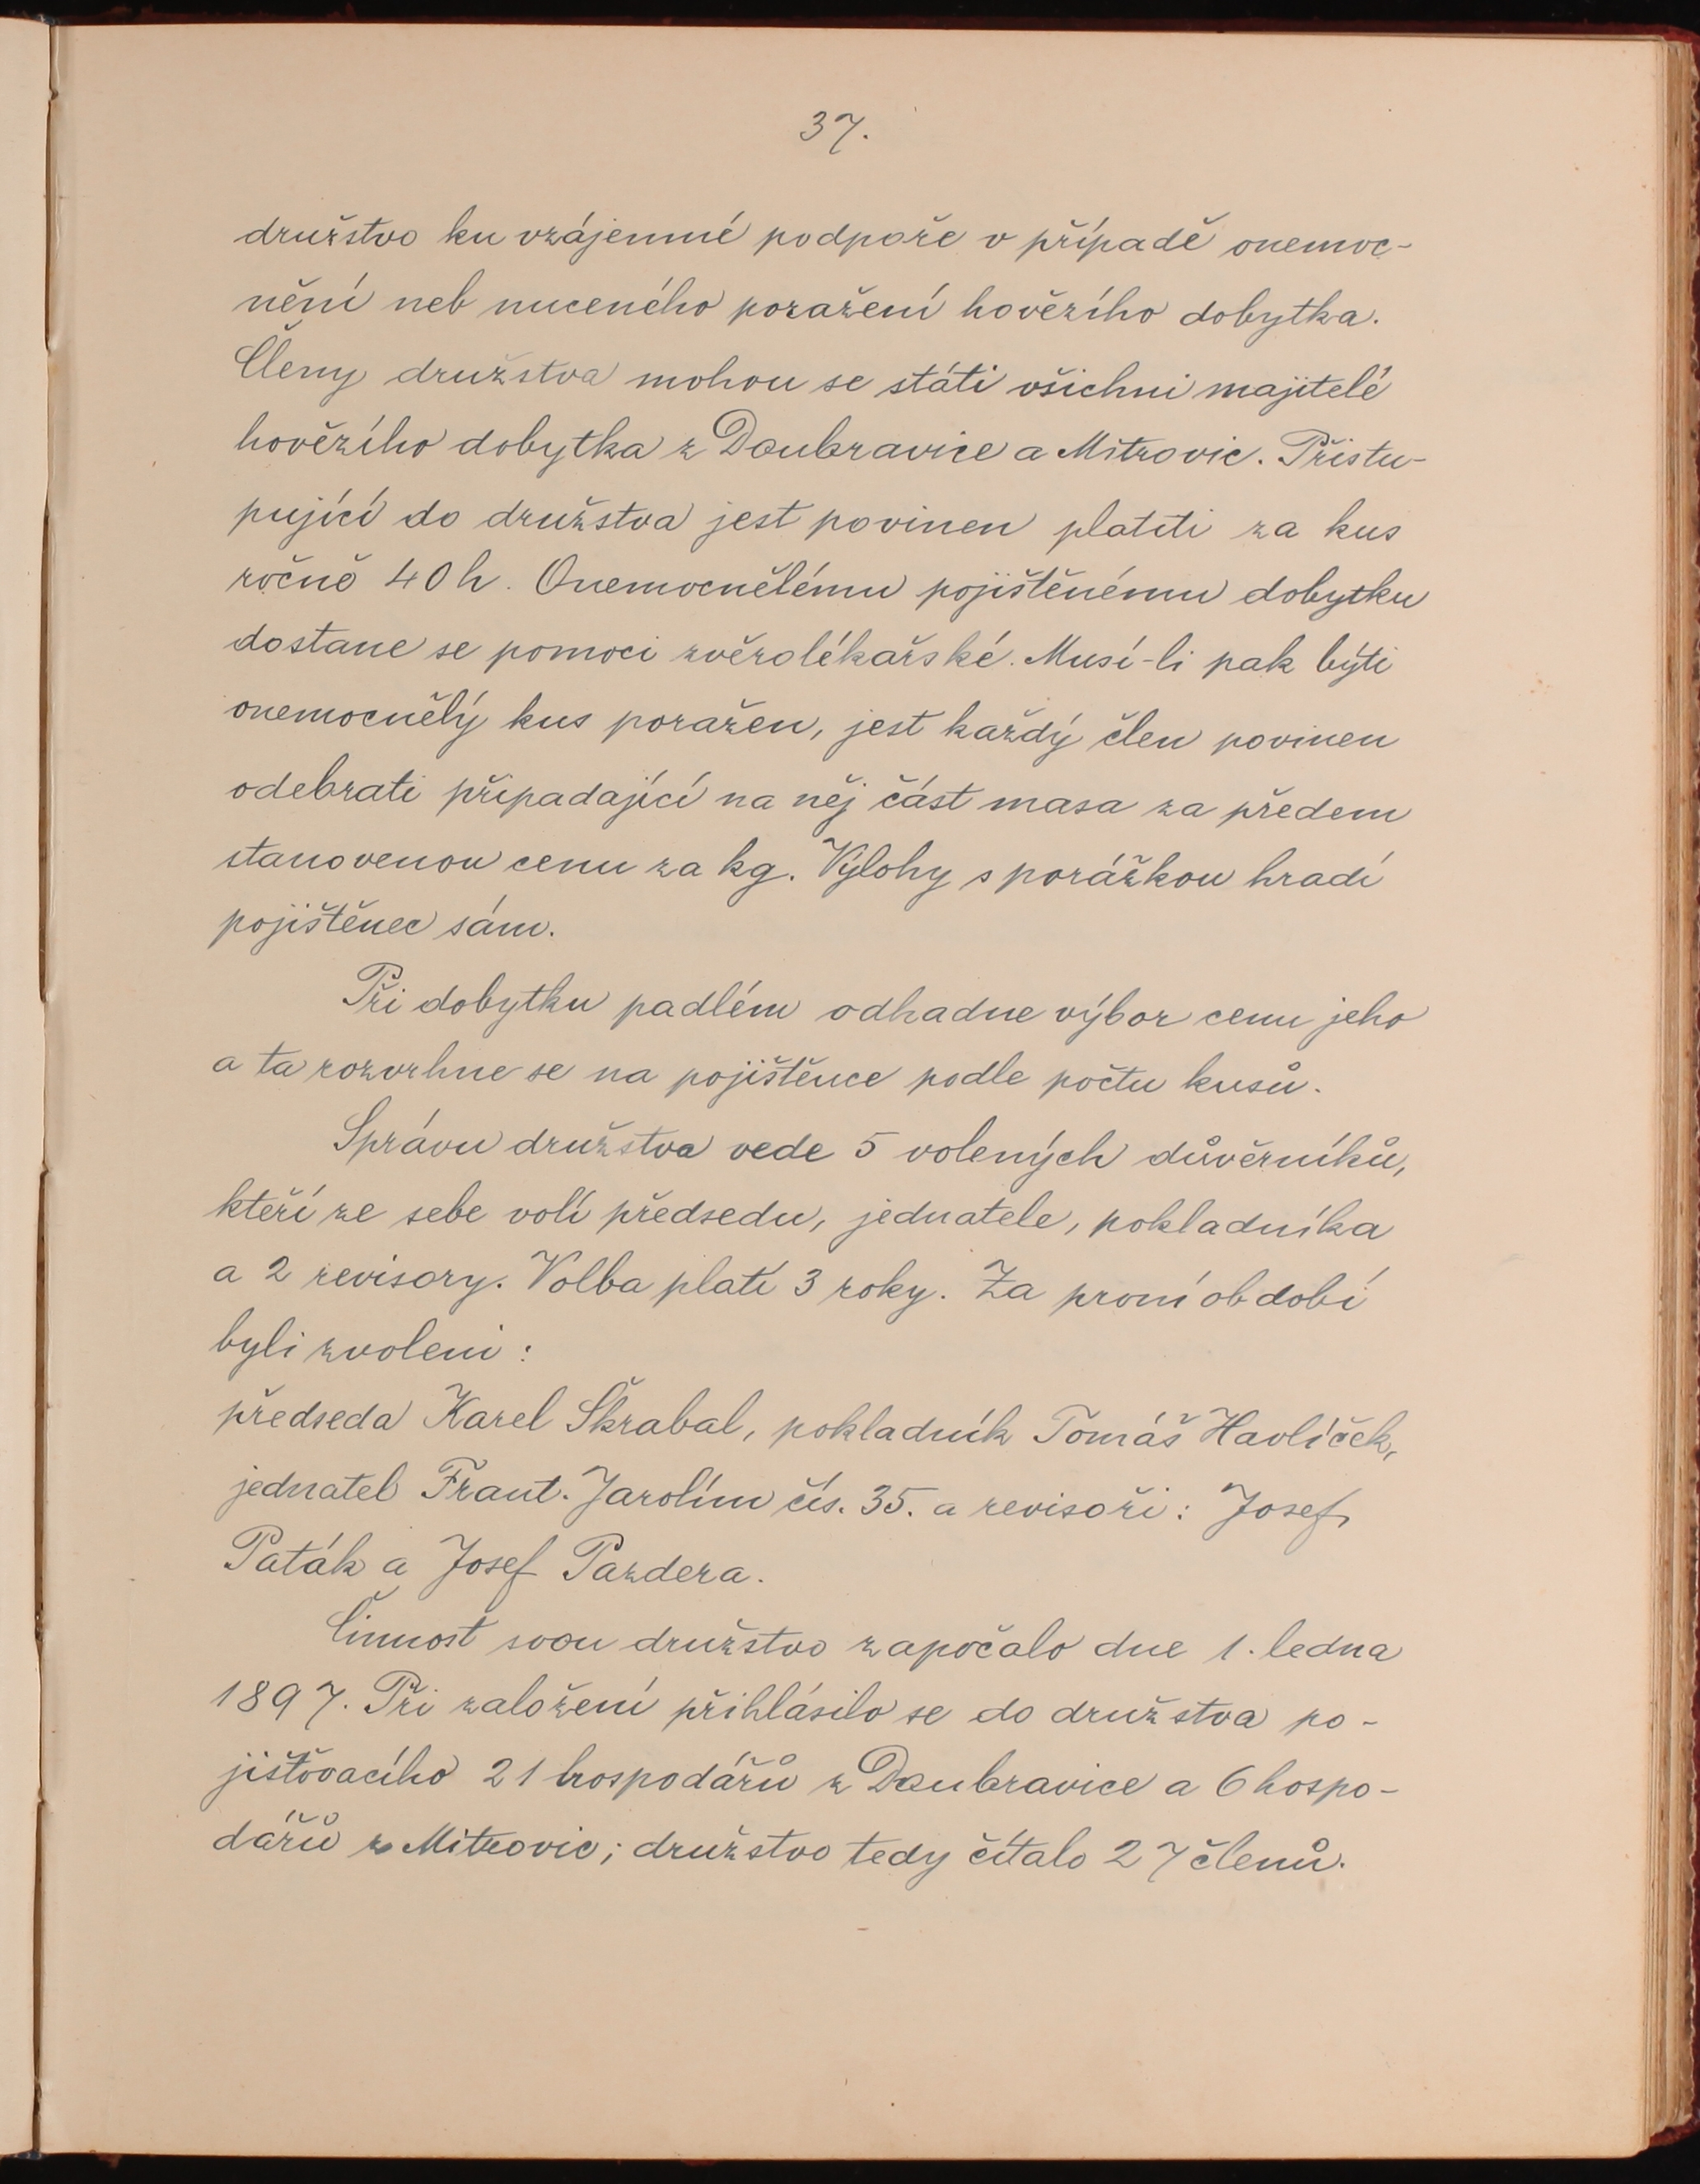 37.
družstvo ku vzájemné podpoře v případě onemoc-
nění neb nuceného poražení hovězího dobytka.
Členy družstva mohou se státi všichni majitelé
hovězího dobytka z Doubravice a Mitrovic. Přistu-
pující do družstva jest povinen platiti za kus
ročně 40 h. Onemocnělému pojištěnému dobytku
dostane se pomoci zvěrolékařské. Musí-li pak býti
onemocnělý kus poražen, jest každý člen povinen
odebrati připadající na něj část masa za předem
stanovenou cenu za kg. Výlohy s porážkou hradí
pojištěnec sám.
Při dobytku padlém odhadne výbor cenu jeho
a ta rozvrhne se na pojištěnce podle počtu kusů.
Správu družstva vede 5 volených důvěrníků,
kteří ze sebe volí předsedu, jednatele, pokladníka
a 2 revisory. Volba platí 3 roky. Za první období
byli zvoleni:
předseda Karel Škrabal, pokladník Tomáš Havlíček,
jednatel Frant. Jarolím čís. 35. a revisoři: Josef
Paták a Josef Pazdera.
Činnost svou družstvo započalo dne 1. ledna
1897. Při založení přihlásilo se do družstva po-
jišťovacího 21 hospodářů z Doubravice a 6 hospo-
dářů z Mitrovic; družstvo tedy čítalo 27 členů.